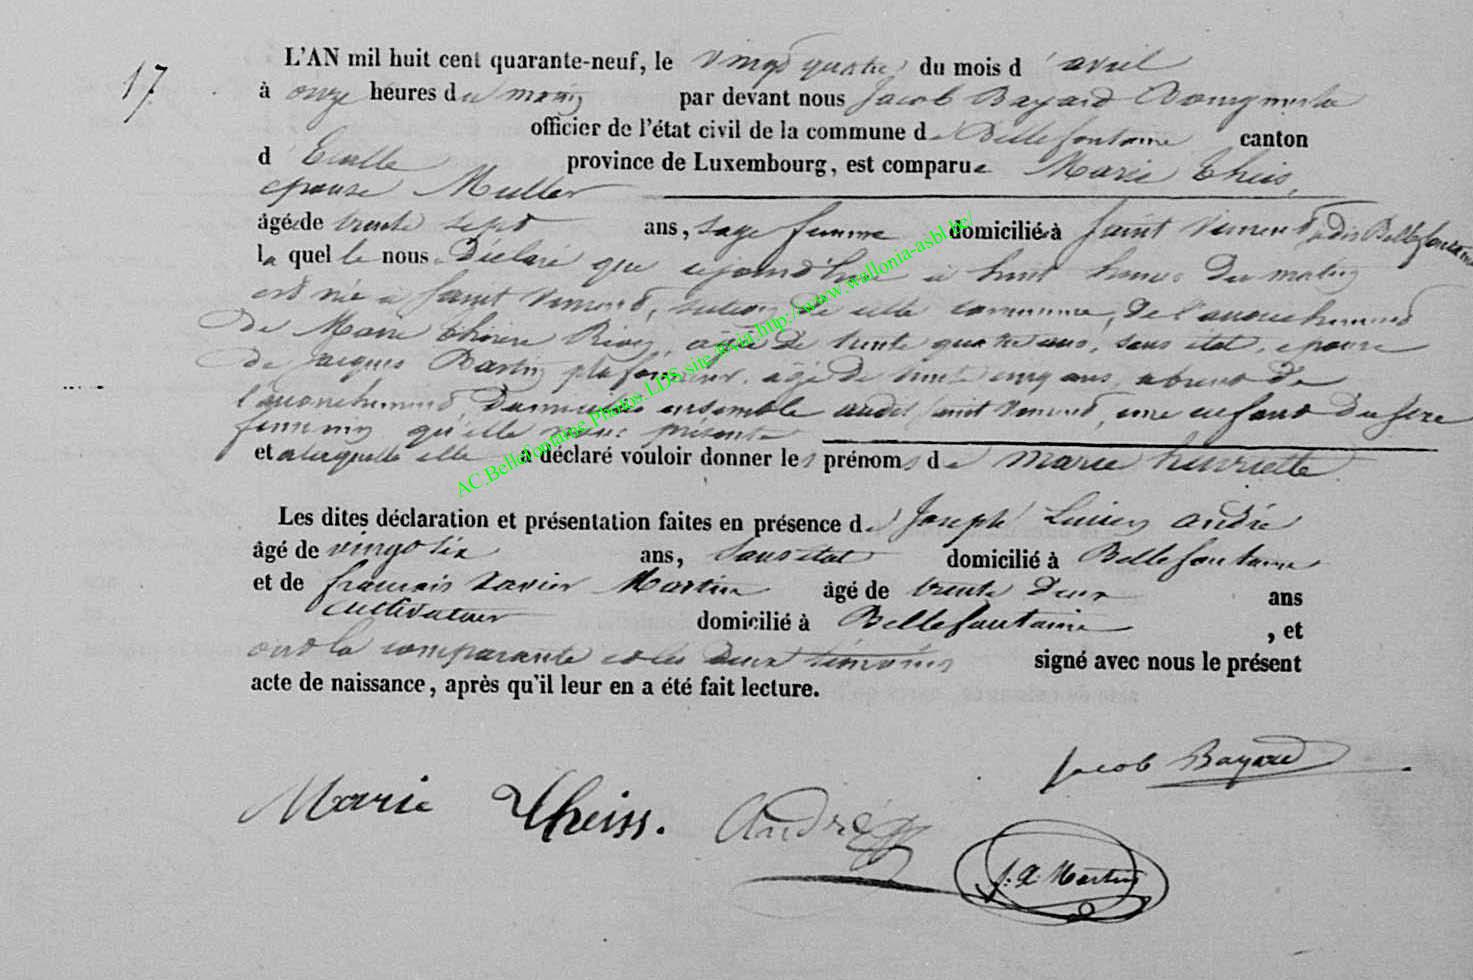 17.
L'AN mil huit cent quarante-neuf, le vingt quatre du mois d'avril
à onze heures du matin par devant nous Jacob Bayard Bourgmestre
officier de l'état civil de la commune de Bellefontaine canton
d'Etalle province de Luxembourg, est comparue Marie Theis,
epouse Muller
âgée de trente sept ans, sage femme domiciliée à Saint Vincent, adis Bellefontaine
la quelle nous a déclaré que cejourd'hui à huit heures du matin
est née à Saint Vincent, section de cette commune, de l'accouchement
de Marie Thérèse, âgée de trente quatre ans, sans état, epouse
de Jacques Martin plafonneur, âgé de trente cinq ans, absent de
l'accouchement, domiciliés ensemble audit Saint Vincent, une enfant du sexe
feminin qu'elle nous présente
et a laquelle elle a déclaré vouloir donner les prénoms de Marie henriette
Les dites déclaration et présentation faites en présence de Joseph Lucien André
âgé de vingt six ans, sans etat domicilié à Bellefontaine
et de francois Xavier Martin âgé de trente deux ans
cultivateur domicilié à Bellefontaine, et
ont la comparante et les deux témoins signé avec nous le présent
acte de naissance, après qu'il leur en a été fait lecture.
Jacob Bayard
Marie Theiss. André
f. X. Martin
AC.Bellefontaine.Photos.LDS.site via http://www.wallonia-asbl.be/